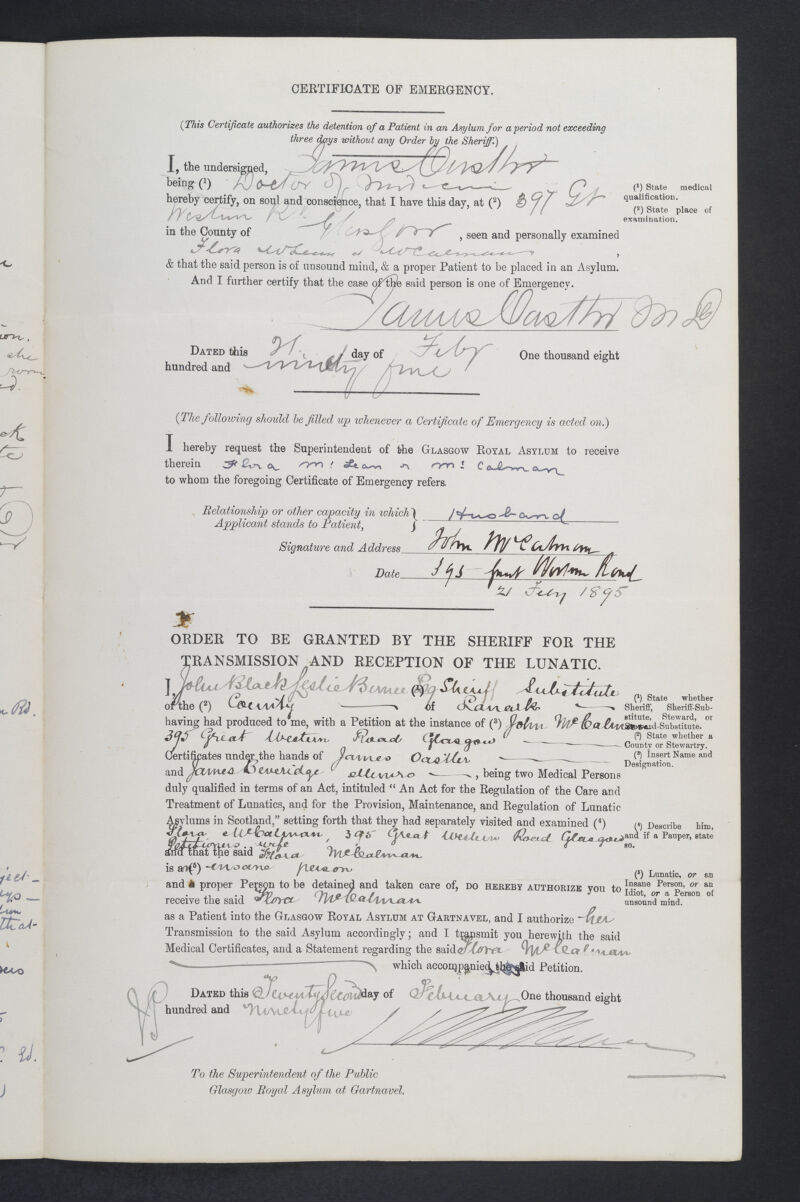 CERTIFICATE OF EMERGENCY.
(This Certificate authorizes the detention of a Patient in an Asylum for a period not exceeding
three days without any Order by the Sheriff.)
I, the undersigned, James Oastler
being (¹) Doctor of Medicine
hereby certify, on soul and conscience, that I have this day, at (²) 397 Gt
Western Rd
in the County of Glasgow, seen and personally examined
Flora McLean or McCalman,
& that the said person is of unsound mind, & a proper Patient to be placed in an Asylum.
And I further certify that the case of the said person is one of Emergency.
James Oastler MD
(¹) State medical
qualification.
(²) State place of
examination.
DATED this 21 day of Feby One thousand eight
hundred and ninety five
(The following should be filled up whenever a Certificate of Emergency is acted on.)
I hereby request the Superintendent of the GLASGOW ROYAL ASYLUM to receive
therein Flora Mc Lean or Mc Calman
to whom the foregoing Certificate of Emergency refers.
Relationship or other capacity in which } Husband
Applicant stands to Patient,
Signature and Address John McCalman
Date 395 Great Western Road
21 Feby 1895
ORDER TO BE GRANTED BY THE SHERIFF FOR THE
TRANSMISSION AND RECEPTION OF THE LUNATIC.
I, John Black Leslie Birnie Esq (¹) Sheriff Substitute
of the (²) County of Lanark
having had produced to me, with a Petition at the instance of (³) John McCalman
395 Great Western Road Glasgow
Certificates under the hands of James Oastler
and James Beveridge Munro, being two Medical Persons
duly qualified in terms of an Act, intituled "An Act for the Regulation of the Care and
Treatment of Lunatics, and for the Provision, Maintenance, and Regulation of Lunatic
Asylums in Scotland," setting forth that they had separately visited and examined (⁴)
Flora McCalman, 395 Great Western Road Glasgow
Petitioners wife
and that the said Flora McCalman
is an (⁵) insane person
and a proper Person to be detained and taken care of, DO HEREBY AUTHORIZE you to
receive the said Flora McCalman
as a Patient into the GLASGOW ROYAL ASYLUM AT GARTNAVEL, and I authorize her
Transmission to the said Asylum accordingly; and I transmit you herewith the said
Medical Certificates, and a Statement regarding the said Flora McCalman
which accompanied the said Petition.
(¹) State whether
Sheriff, Sheriff-Sub-
stitute, Steward, or
Steward-Substitute.
(²) State whether a
County or Stewartry.
(³) Insert Name and
Designation.
(⁴) Describe him,
and if a Pauper, state
so.
(⁵) Lunatic, or an
Insane Person, or an
Idiot, or a Person of
unsound mind.
DATED this Twenty Second day of February One thousand eight
hundred and ninety five
To the Superintendent of the Public
Glasgow Royal Asylum at Gartnavel.